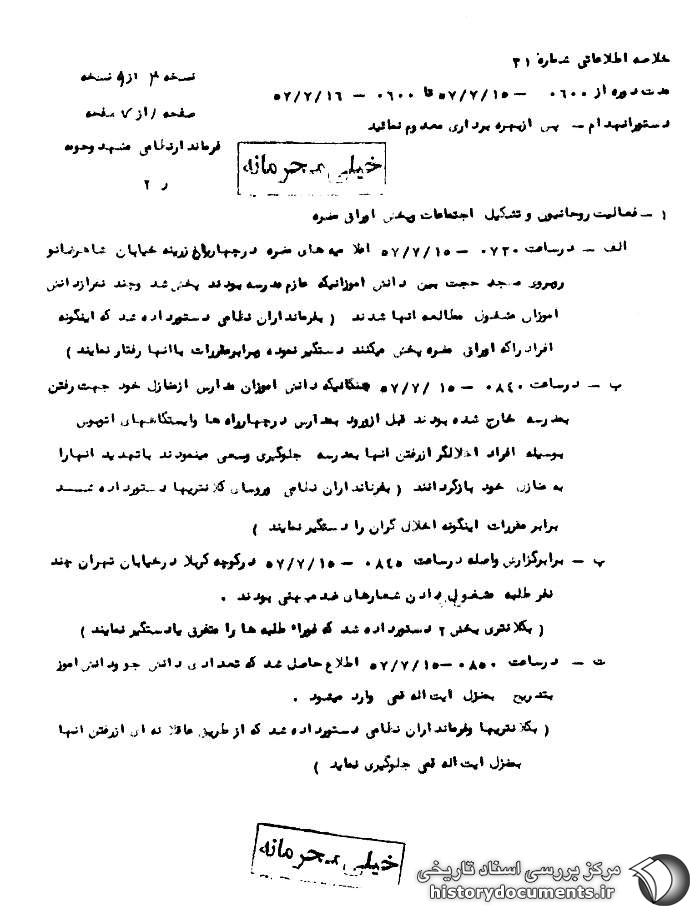 خلاصه اطلاعاتی شماره ۳۱
نسخه ۳ از ۹ نسخه
مدت دوره از ۰۶۰۰ – ۵۷/۷/۱۵ تا ۰۶۰۰ – ۵۷/۷/۱۶
صفحه ۱ از ۷ صفحه
دستورانهدام – پس ازبهره برداری معدوم نمائید
فرماندارنظامی مشهد وحومه
خیلی محرمانه
ر ۲
۱ – فعالیت روحانیون و تشکیل اجتماعات وپخش اوراق مضره
الف – درساعت ۰۷۲۰ – ۵۷/۷/۱۵ اعلامیه های مضره درچهارباغ زرینه خیابان شاهرضانو
روبروی مسجد حجت بین دانش اموزانیکه عازم مدرسه بودند پخش شد وچند نفرازدانش
اموزان مشغول مطالعه انها شدند ( بفرمانداران نظامی دستورداده شد که اینگونه
افراد راکه اوراق مضره پخش میکنند دستگیر نموده وبرابرمقررات باانها رفتار نمایند )
ب – درساعت ۰۸۴۰ – ۵۷/۷/۱۵ هنگامیکه دانش اموزان مدارس ازمنازل خود جهت رفتن
بمدرسه خارج شده بودند قبل ازورود بمدارس درچهارراه ها وایستگاههای اتوبوس
بوسیله افراد اخلالگر ازرفتن انها بمدرسه جلوگیری وسعی مینمودند باتهدید انهارا
به منازل خود بازگردانند ( بفرمانداران نظامی وروسای کلانتریها دستورداده شد
برابر مقررات اینگونه اخلال گران را دستگیر نمایند )
پ – برابرگزارش واصله درساعت ۰۸۴۵ – ۵۷/۷/۱۵ درکوچه کربلا درخیابان تهران چند
نفر طلبه مشغول دادن شعارهای ضد میهنی بودند .
( بکلانتری بخش ۲ دستورداده شد که فورا طلبه ها را متفرق یادستگیر نمایند )
ت – درساعت ۰۸۵۰ – ۵۷/۷/۱۵ اطلاع حاصل شد که تعدادی دانش جو ودانش اموز
بتدریج بمنزل ایت اله قمی وارد میشود .
( بکلانتریها وفرمانداران نظامی دستورداده شد که از طریق عاقلانه ای ازرفتن انها
بمنزل ایت اله قمی جلوگیری نماید )
خیلی محرمانه
مرکز بررسی اسناد تاریخی
historydocuments.ir